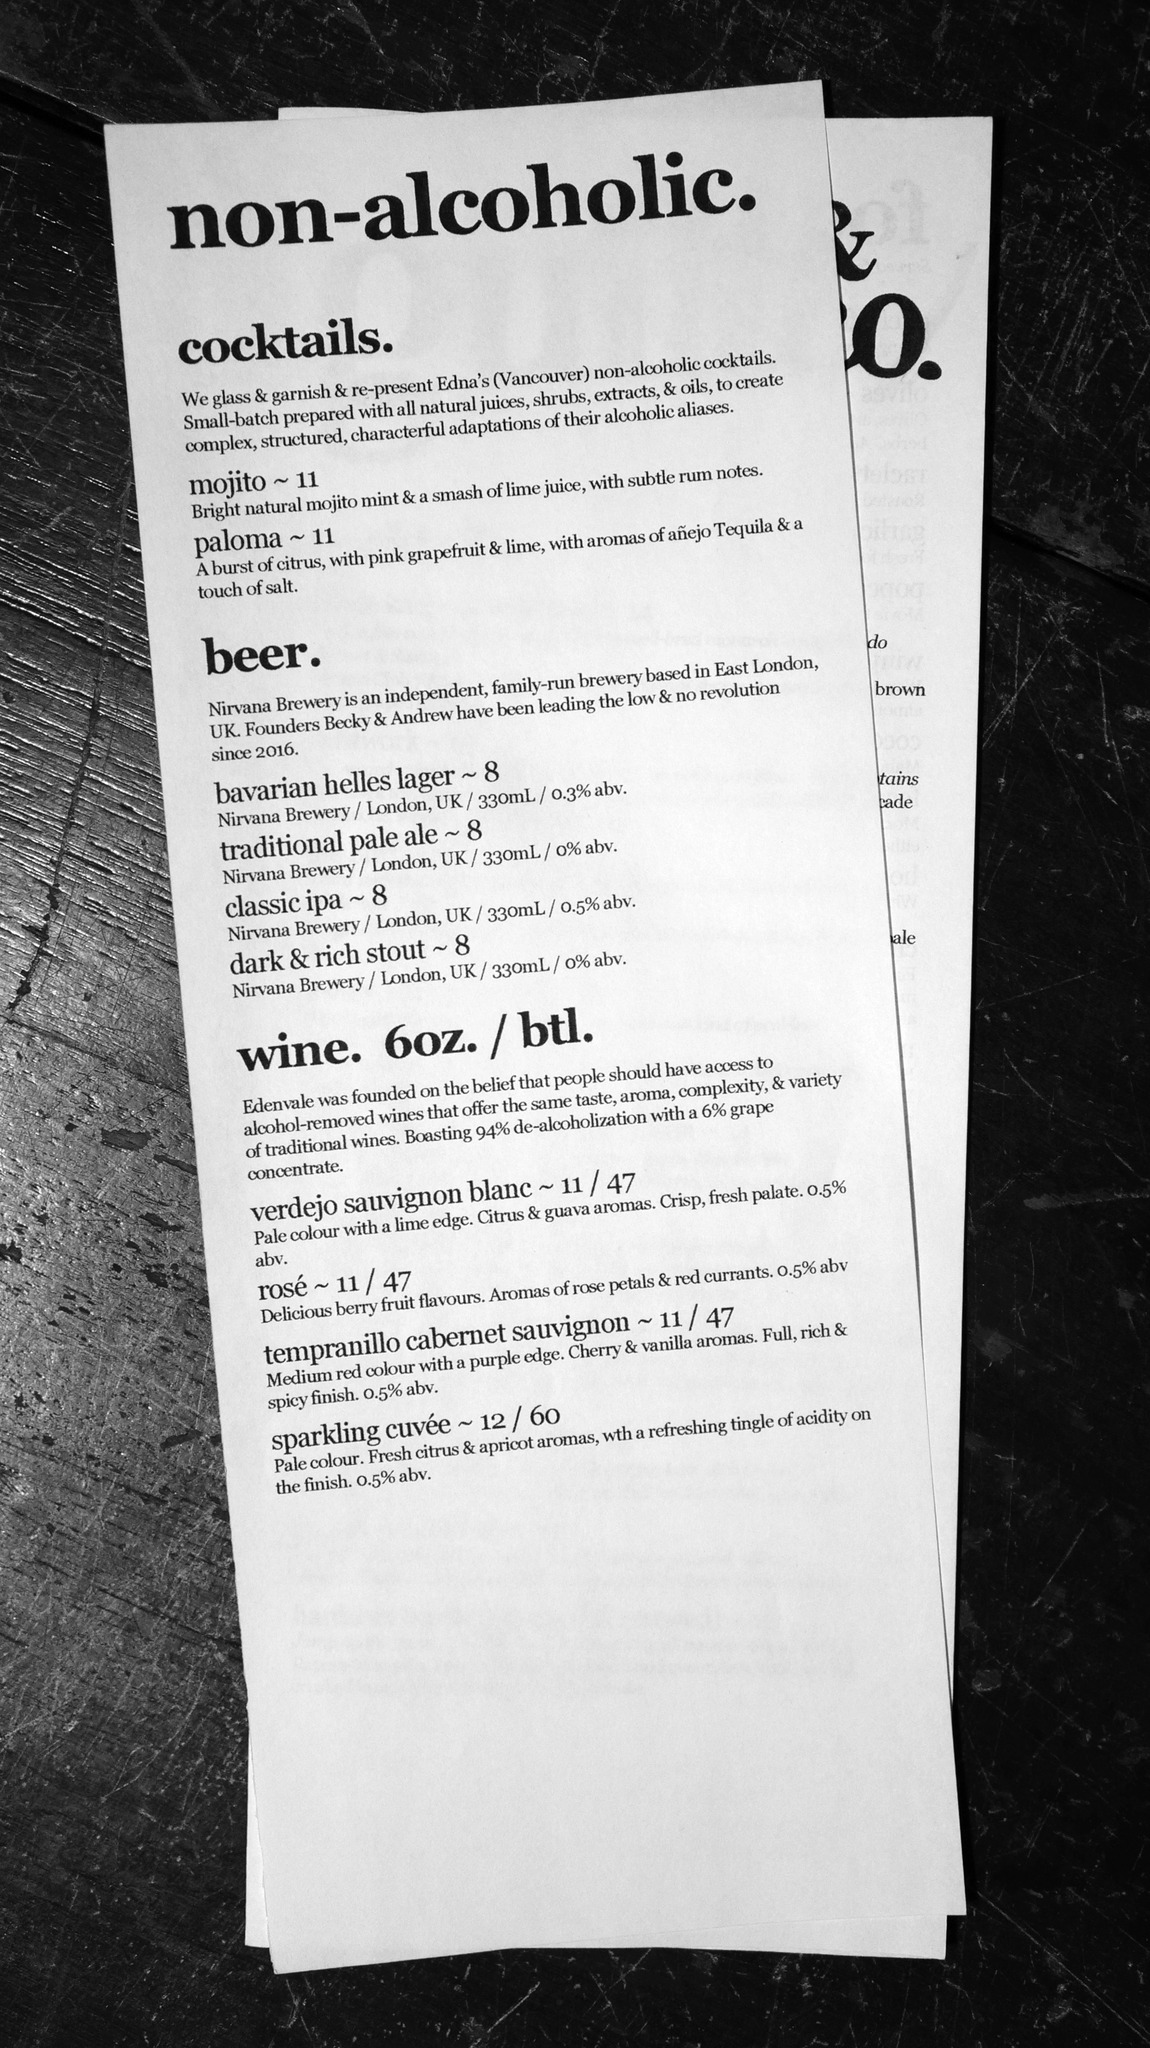 non-alcoholic.
cocktails.
We glass & garnish & re-present Edna's (Vancouver) non-alcoholic cocktails.
Small-batch prepared with all natural juices, shrubs, extracts, & oils, to create
complex, structured, characterful adaptations of their alcoholic aliases.
mojito ~ 11
Bright natural mojito mint & a smash of lime juice, with subtle rum notes.
paloma ~ 11
A burst of citrus, with pink grapefruit & lime, with aromas of añejo Tequila & a
touch of salt.
beer.
Nirvana Brewery is an independent, family-run brewery based in East London,
UK. Founders Becky & Andrew have been leading the low & no revolution
since 2016.
bavarian helles lager ~ 8
Nirvana Brewery / London, UK / 330mL / 0.3% abv.
traditional pale ale ~ 8
Nirvana Brewery / London, UK / 330mL / 0% abv.
classic ipa ~ 8
Nirvana Brewery / London, UK / 330mL / 0.5% abv.
dark & rich stout ~ 8
Nirvana Brewery / London, UK / 330mL / 0% abv.
wine. 6oz. / btl.
Edenvale was founded on the belief that people should have access to
alcohol-removed wines that offer the same taste, aroma, complexity, & variety
of traditional wines. Boasting 94% de-alcoholization with a 6% grape
concentrate.
verdejo sauvignon blanc ~ 11 / 47
Pale colour with a lime edge. Citrus & guava aromas. Crisp, fresh palate. 0.5%
abv.
rosé ~ 11 / 47
Delicious berry fruit flavours. Aromas of rose petals & red currants. 0.5% abv
tempranillo cabernet sauvignon ~ 11 / 47
Medium red colour with a purple edge. Cherry & vanilla aromas. Full, rich &
spicy finish. 0.5% abv.
sparkling cuvée ~ 12 / 60
Pale colour. Fresh citrus & apricot aromas, wth a refreshing tingle of acidity on
the finish. 0.5% abv.
&
o.
do
brown
tains
cade
ale